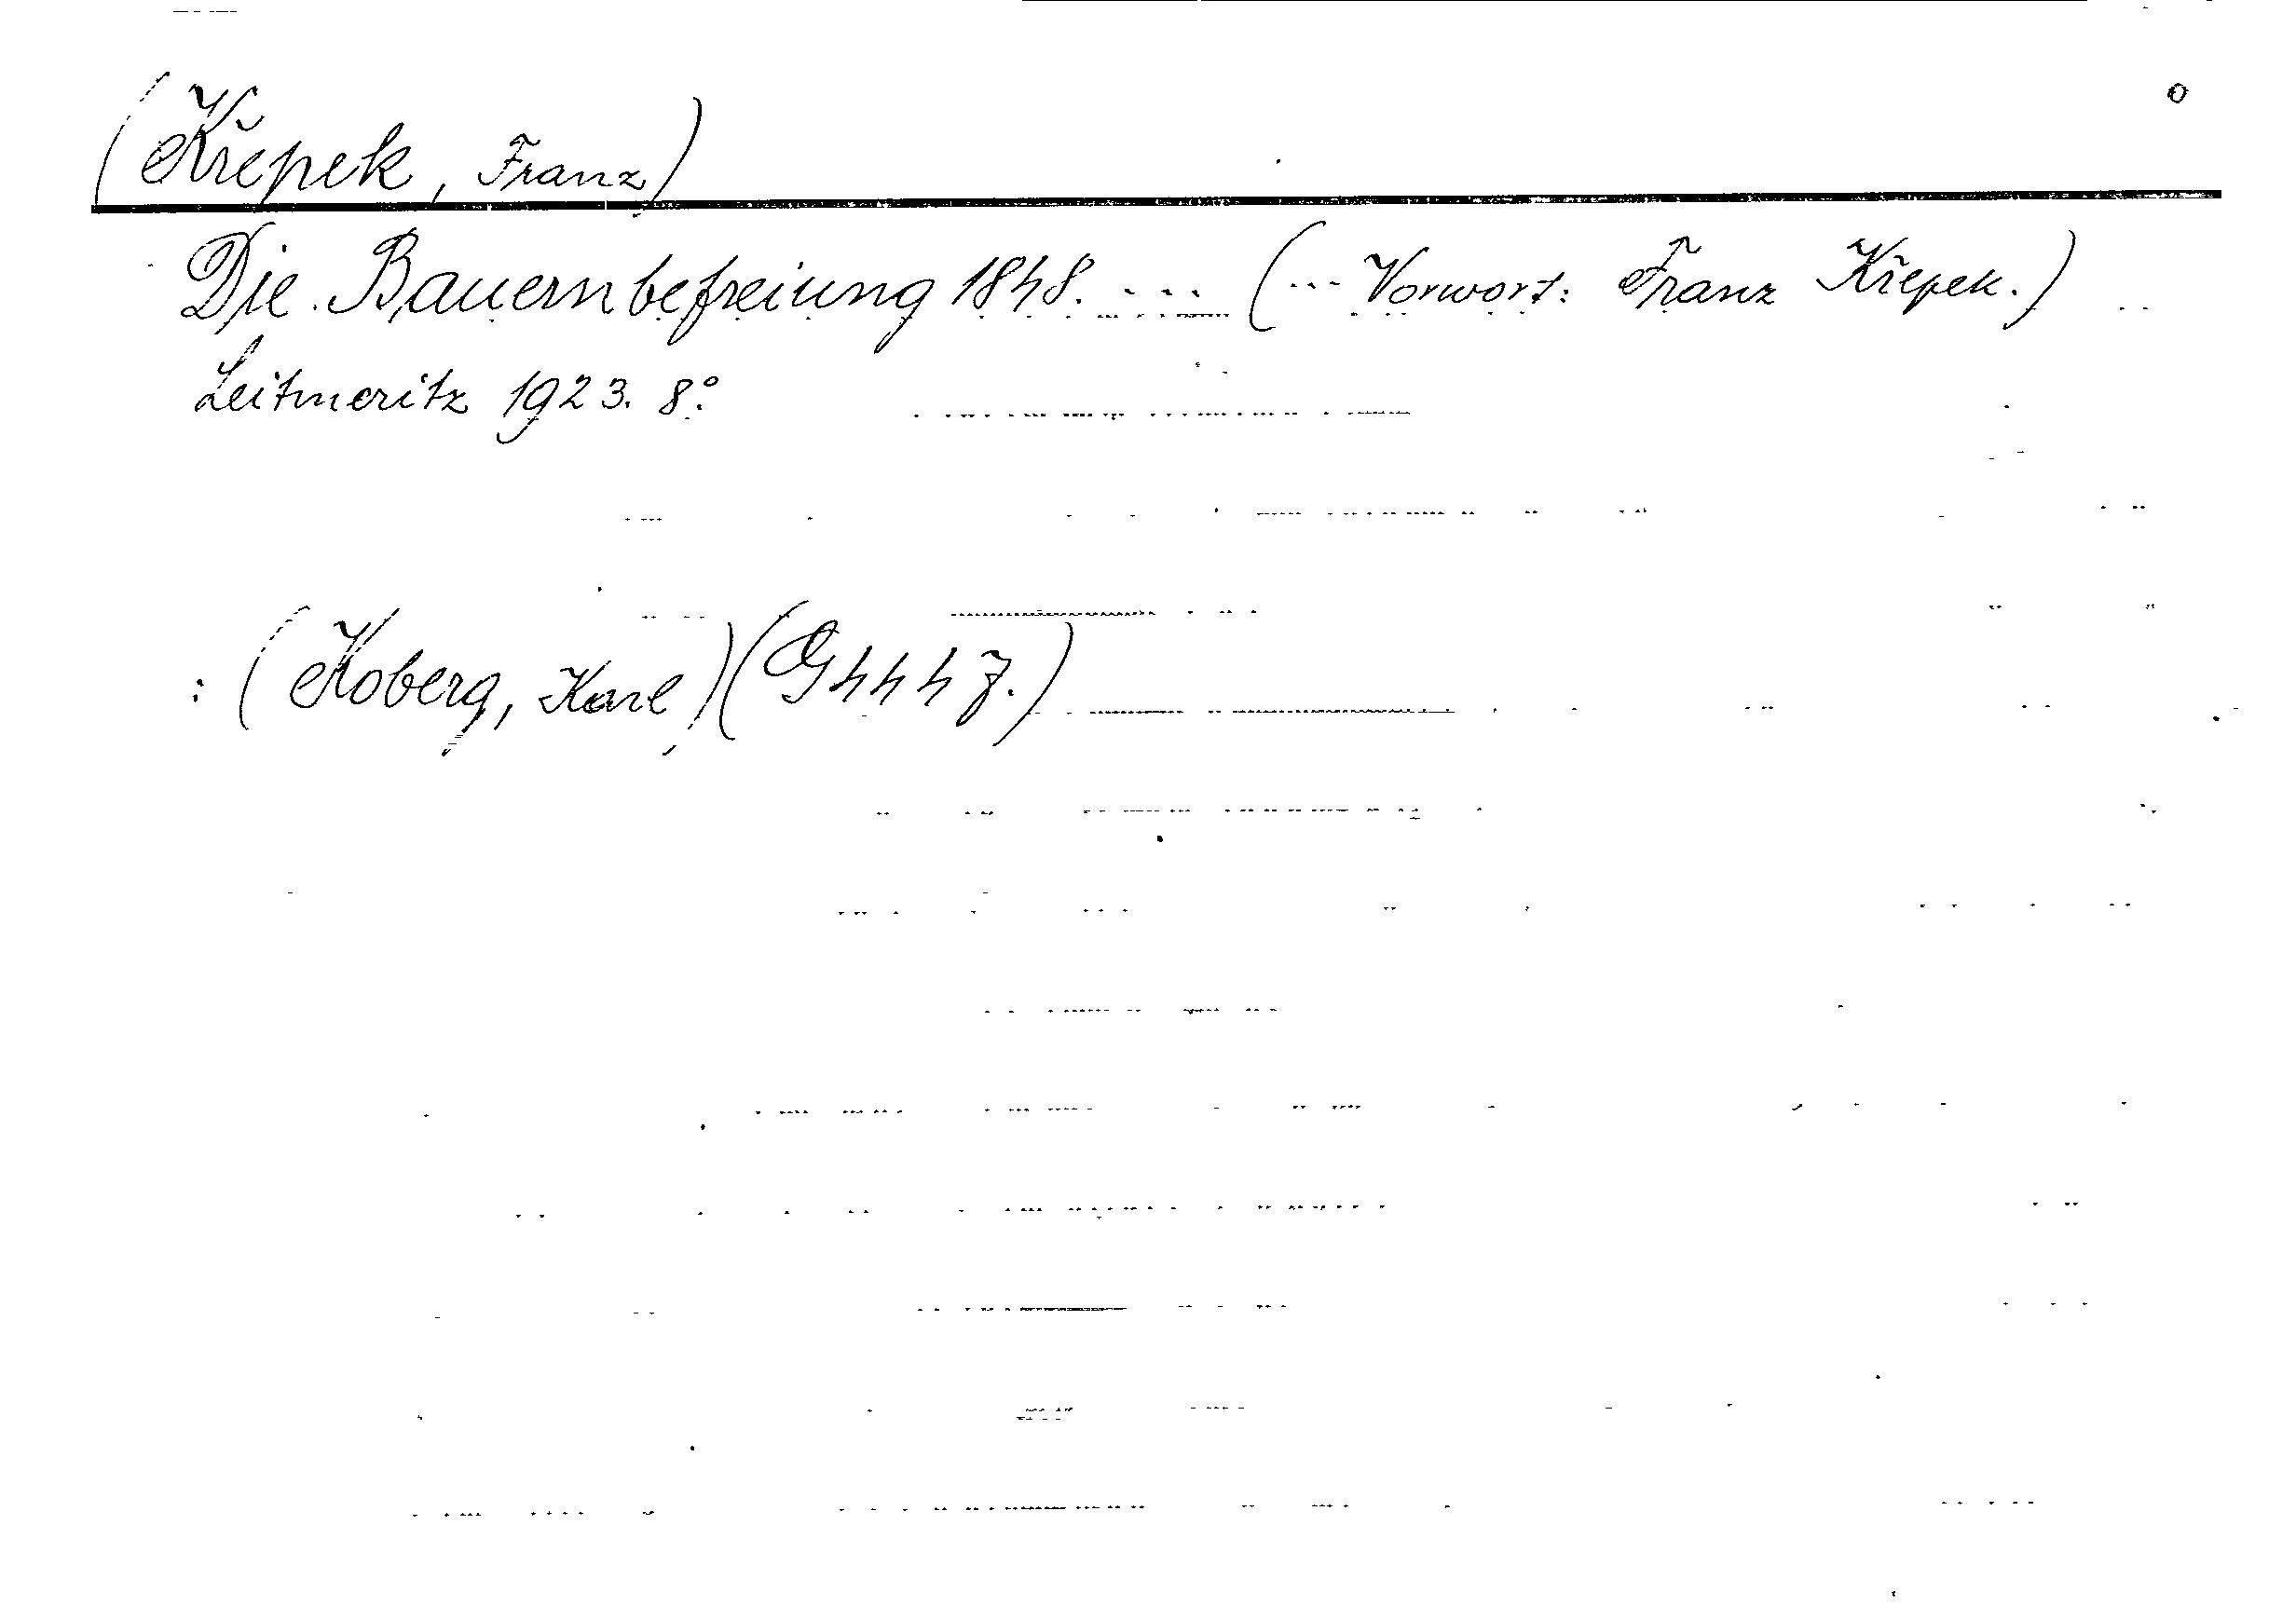 (Křepek, Franz)
Die Bauernbefreiung 1848. ... (... Vorwort: Franz Křepek.)
Leitmeritz 1923. 8°.
: (Koberg, Karl) (G 444 7.)